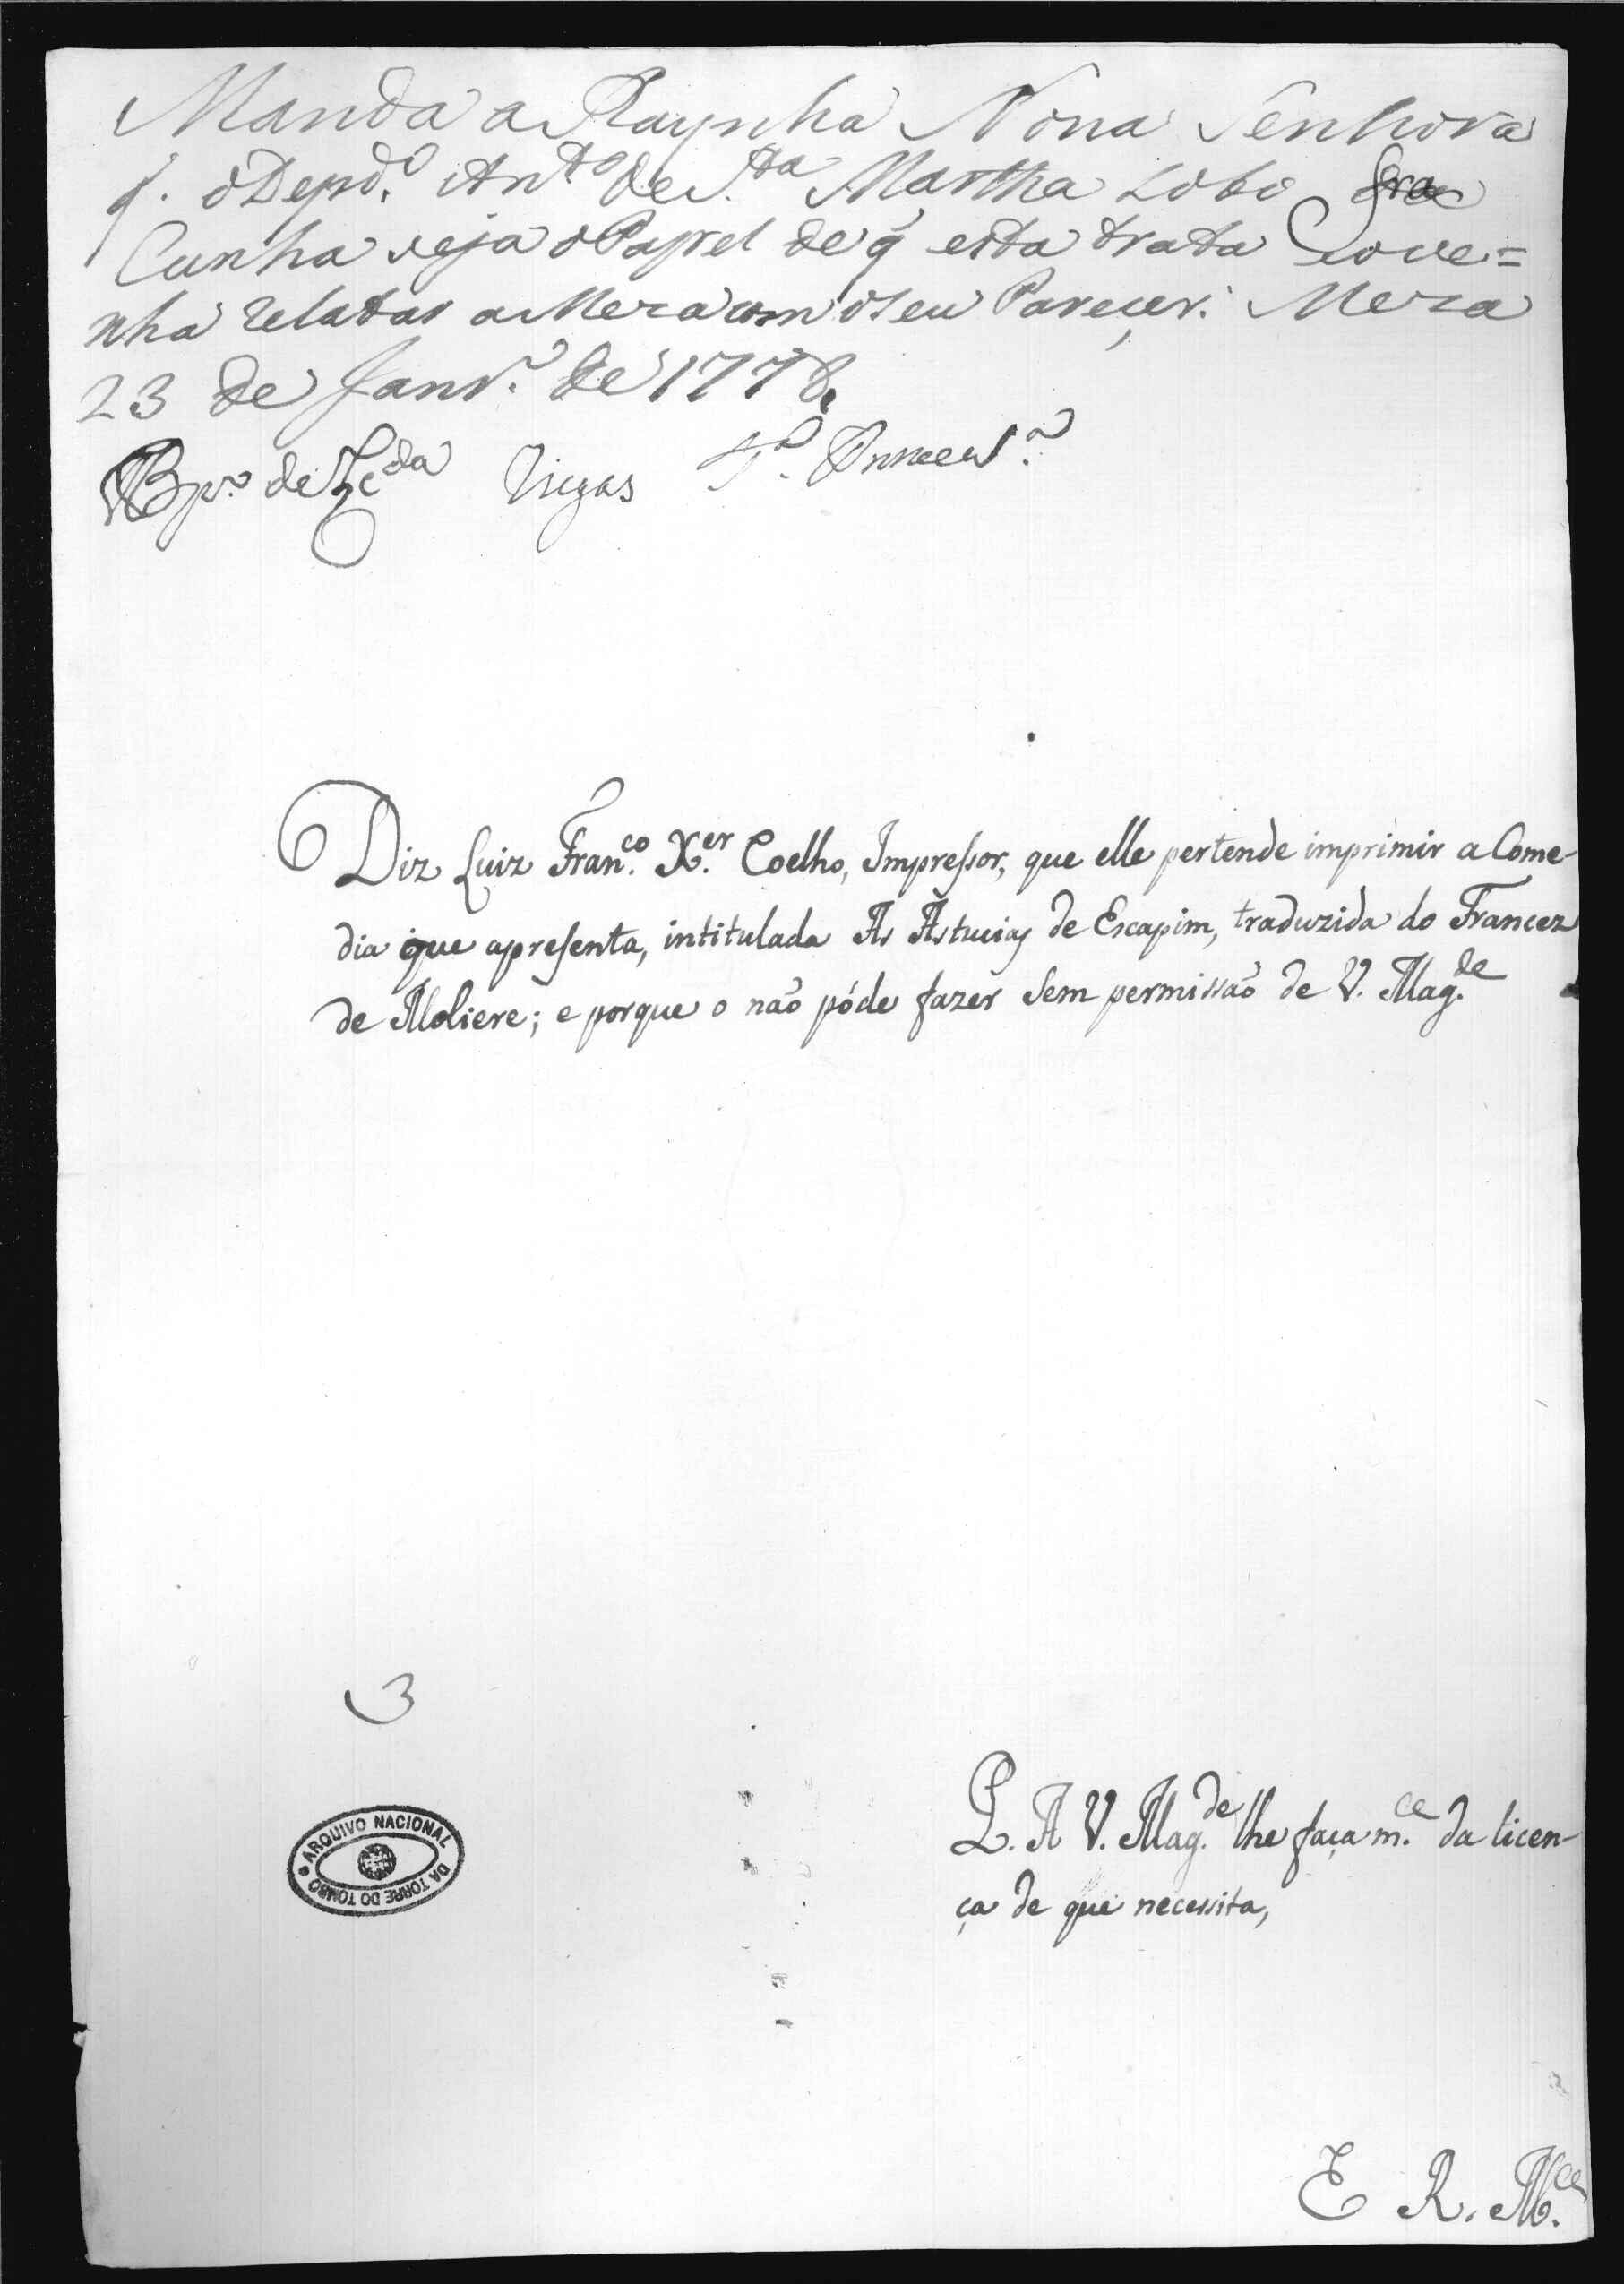 Manda a Raynha Nossa Senhora
q. o Depd.º Ant.º de S.ta Martha Lobo da
Cunha veja o Papel de q̃ esta trata e o ve=
nha relatar a Meza com o seu Pareçer. Meza
23 de Janr.º de 1778.
Bpo. de Viegas
Diz Luiz Fran.co X.er Coelho, Impressor, que elle pertende imprimir a Come-
dia que apresenta, intitulada As Astucias de Escapim, traduzida do Francez
de Moliere; e porque o não póde fazer sem permissão de V. Mag.de
3
P. A V. Mag.de lhe faça m.ce da licen-
ça de que necessita,
ARQUIVO NACIONAL DA TORRE DO TOMBO
E R. M.ce